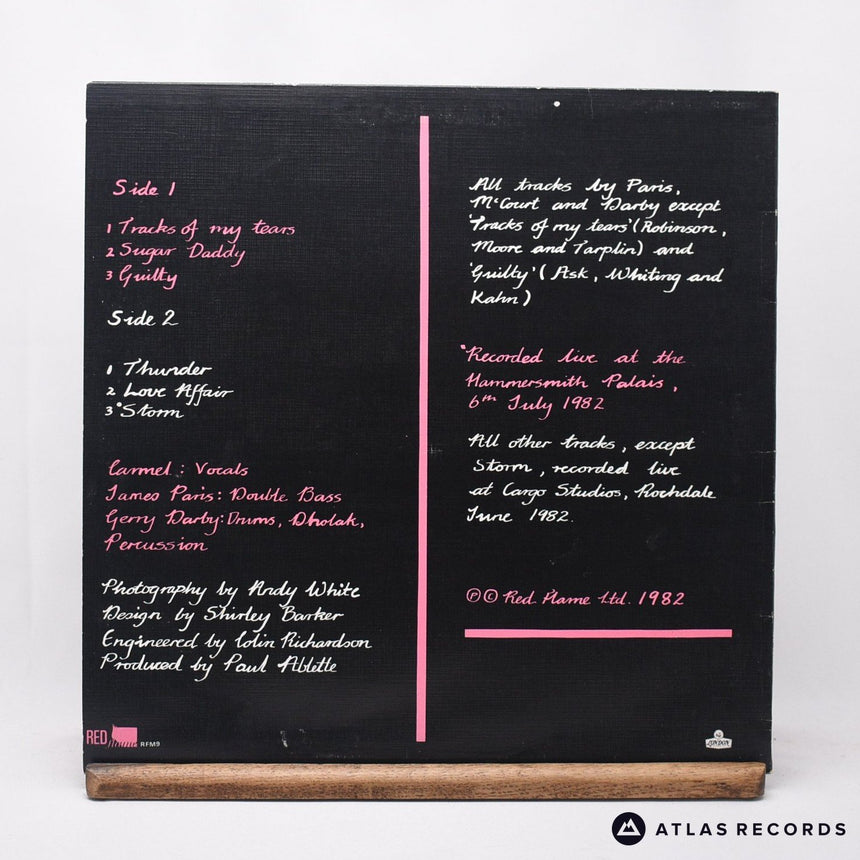 Side 1
1 Tracks of my tears
2 Sugar Daddy
3 Guilty
Side 2
1 Thunder
2 Love Affair
3 *Storm
Carmel : Vocals
James Paris: Double Bass
Gerry Darby: Drums, Dholak,
Percussion
Photography by Andy White
Design by Shirley Barker
Engineered by Colin Richardson
Produced by Paul Ablette
RED flame RFM9
All tracks by Paris,
McCourt and Darby except
'Tracks of my tears' (Robinson,
Moore and Tarplin) and
'Guilty' ( Ask, Whiting and
Kahn )
*Recorded live at the
Hammersmith Palais,
6th July 1982
All other tracks, except
Storm, recorded live
at Cargo Studios, Rochdale
June 1982.
Ⓟ © Red Flame Ltd. 1982
LONDON
ATLAS RECORDS